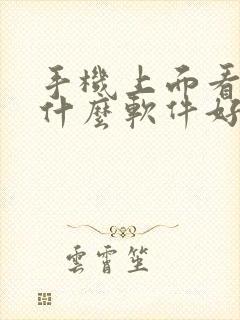 手機上而看
什麼軟件好
雲霄笙